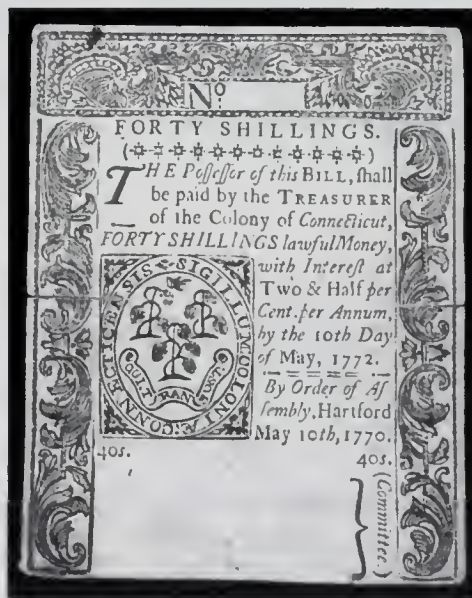 No.
FORTY SHILLINGS.
THE Poſſeſſor of this BILL, ſhall
be paid by the TREASURER
of the Colony of Connecticut,
FORTY SHILLINGS lawful Money,
with Intereſt at
Two & Half per
Cent. per Annum,
by the 10th Day
of May, 1772.
By Order of Aſ
ſembly, Hartford
May 10th, 1770.
SIGILLUM COLONIÆ CONNECTICENSIS
QUI TRAN SUST
40s. 40s.
(Committee.)